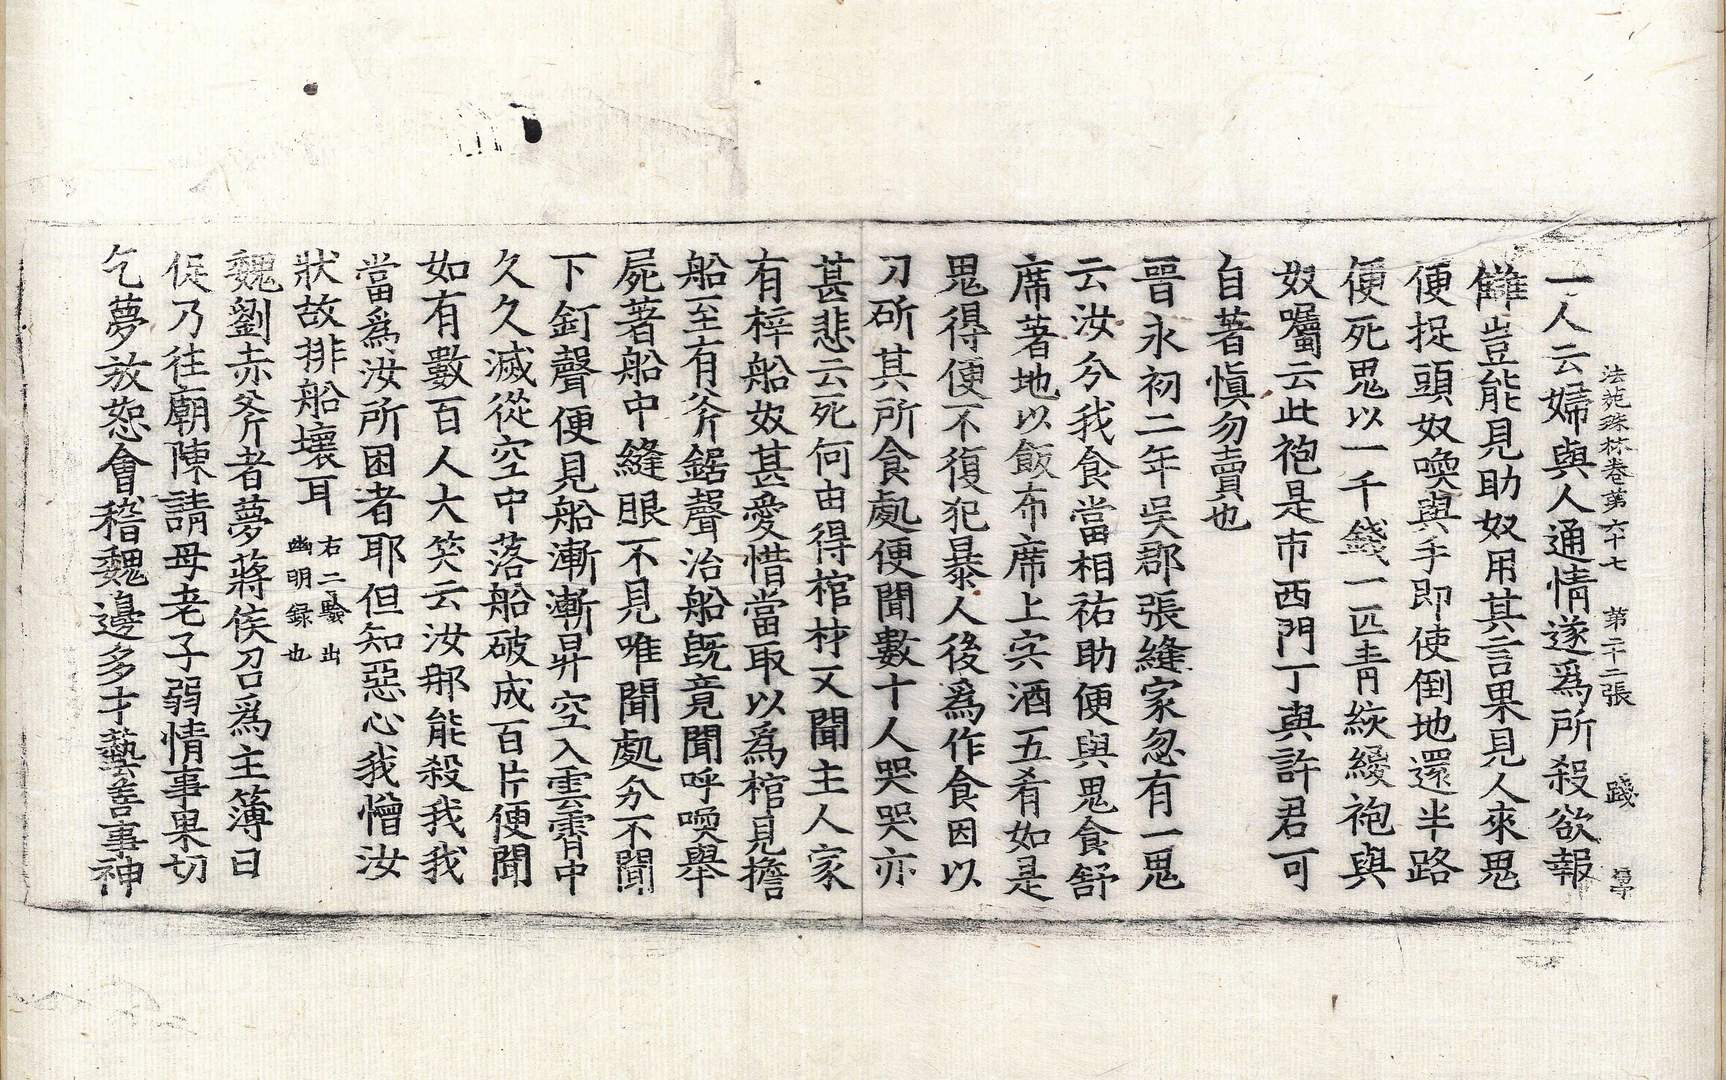 法苑珠林卷第六十七 第二十二張 踐
一人云婦與人通情遂爲所殺欲報
讎豈能見助奴用其言果見人來鬼
便捉頭奴喚與手即使倒地還半路
便死鬼以一千錢一匹青絞緩袍與
奴囑云此袍是市西門丁與許君可
自著愼勿賣也
晉永初二年吳郡張縫家忽有一鬼
云汝分我食當相祐助便與鬼食舒
席著地以飯布席上宍酒五肴如是
鬼得便不復犯暴人後爲作食因以
刀斫其所食處便聞數十人哭哭亦
甚悲云死何由得棺材又聞主人家
有梓船奴甚愛惜當取以爲棺見擔
船至有斧鋸聲治船旣竟聞呼喚舉
屍著船中縫眼不見唯聞處分不聞
下釘聲便見船漸漸昇空入雲霄中
久久滅從空中落船破成百片便聞
如有數百人大笑云汝那能殺我我
當爲汝所困者耶但知惡心我憎汝
狀故排船壞耳 右二驗出幽明錄也
魏劉赤斧者夢蔣侯召爲主簿日
促乃往廟陳請母老子弱情事果切
乞夢放恕會稽魏邊多才藝善事神